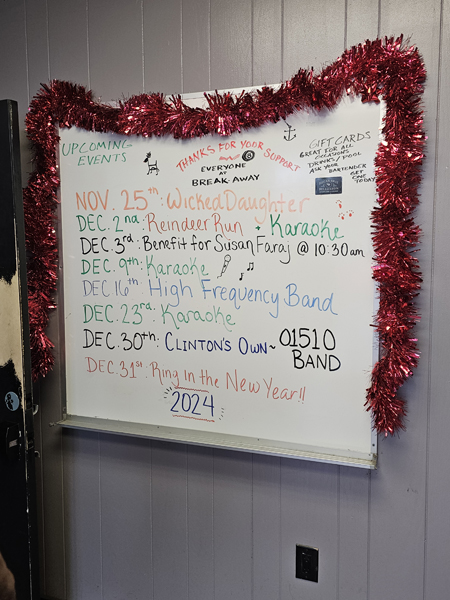 UPCOMING
EVENTS
THANKS FOR YOUR SUPPORT
EVERYONE
AT
BREAK-AWAY
GIFT CARDS
GREAT FOR ALL
OCCASIONS
DRINKS / POOL
ASK YOUR BARTENDER
GET
ONE
TODAY
NOV. 25th: Wicked Daughter
DEC. 2nd: Reindeer Run + Karaoke
DEC. 3rd: Benefit for Susan Faraj @ 10:30am
DEC. 9th: Karaoke
DEC. 16th: High Frequency Band
DEC. 23rd: Karaoke
DEC. 30th: CLINTON'S OWN~ 01510
BAND
DEC. 31st: Ring in the New Year!!
2024